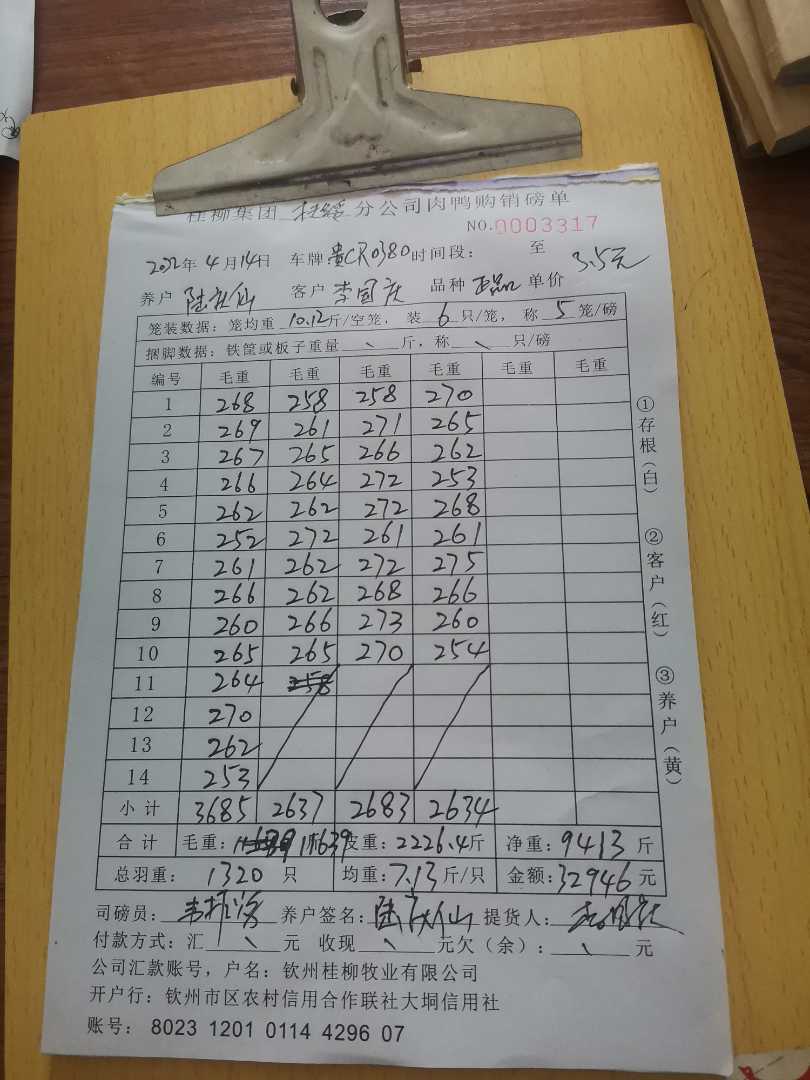 桂柳集团 分公司肉鸭购销磅单
NO.0003317
2022年4月14日 车牌贵CR0380时间段: 至
养户 陆 仙 客户 李国庆 品种 正品 单价 3.5元
笼装数据:笼均重 10.12斤/空笼, 装 6 只/笼, 称 5 笼/磅
捆脚数据:铁筐或板子重量 、 斤,称 、 只/磅
编号 毛重 毛重 毛重 毛重 毛重 毛重
1 268 258 258 270
2 269 261 271 265
3 267 265 266 262
4 266 264 272 253
5 262 262 272 268
6 252 272 261 261
7 261 262 272 275
8 266 262 268 266
9 260 266 273 260
10 265 265 270 254
11 264 258
12 270
13 262
14 253
小计 3685 2637 2683 2634
合计 毛重: 11639 皮重:2226.4斤 净重:9413 斤
总羽重: 1320 只 均重:7.13斤/只 金额:32946 元
司磅员: 养户签名: 陆 仙 提货人:
付款方式:汇 、 元 收现 、 元欠(余): 、 元
公司汇款账号,户名:钦州桂柳牧业有限公司
开户行:钦州市区农村信用合作联社大垌信用社
账号: 8023 1201 0114 4296 07
①存根(白) ②客户(红) ③养户(黄)